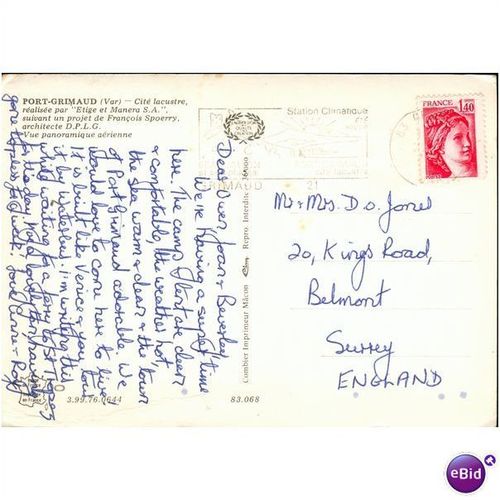 PORT-GRIMAUD (Var) — Cité lacustre,
réalisée par "Etige et Manera S.A.",
suivant un projet de François Spoerry,
architecte D.P.L.G.
Vue panoramique aérienne
Dear Owen, Joan & Beverley,
We're having a super time
here. The camp & tent are clean
& comfortable, the weather hot
the sea warm & clear & the town
of Port Grimaud adorable. We
would love to come here to live!
It is built like Venice & you tour
it by waterbus. I'm writing this
whilst waiting for a ferry to St Tropez
for the day.
gone topless
Love Anne & Roy
Combier Imprimeur Mâcon
Repro. Interdite
3.99.76.0644
83.068
Station Climatique
GRIMAUD
21
FRANCE
1,40
Mr & Mrs. D.O. Jones
20, Kings Road,
Belmont
Surrey
ENGLAND
eBid